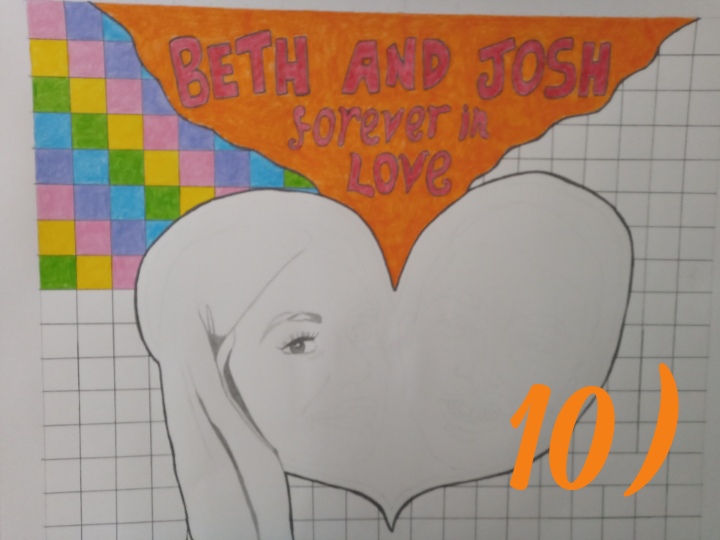 BETH AND JOSH
forever in
LOVE
10)